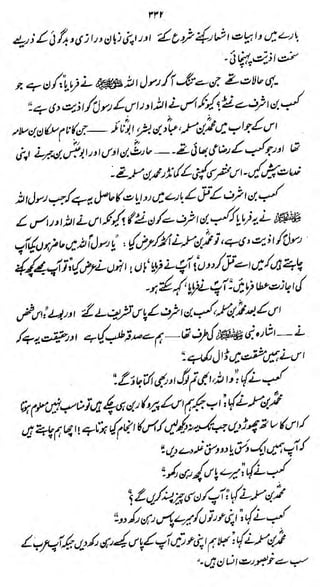 ۳۳۲
بارے میں واہیات اشعار کہنے شروع کئے اور اپنی زبان درازی و بدگوئی کے ذریعے
سخت اذیت پہنچائی۔
یہی حالات تھے جن سے تنگ آ کر رسول اللہ ﷺ نے فرمایا: "کون ہے جو
کعب بن اشرف سے نمٹے؟ کیونکہ اس نے اللہ اور اس کے رسول کو اذیت دی ہے"
اس کے جواب میں محمد بن مسلمہ، عباد بن بشر، ابو نائلہ — جن کا نام سلکان بن سلامہ
تھا اور جو کعب کے رضاعی بھائی تھے — حارث بن اوس اور ابو عبس بن جبر نے اپنی
خدمات پیش کیں۔ اس مختصر سی کمپنی کے کمانڈر محمد بن مسلمہ تھے۔
کعب بن اشرف کے قتل کے بارے میں روایات کا حاصل یہ ہے کہ جب رسول اللہ
ﷺ نے یہ فرمایا کہ کعب بن اشرف سے کون نمٹے گا؟ کیونکہ اس نے اللہ اور اس کے
رسول کو اذیت دی ہے، تو محمد بن مسلمہ نے اٹھ کر عرض کیا: "یا رسول اللہ میں حاضر ہوں کیا آپ
چاہتے ہیں کہ میں اسے قتل کر دوں؟ آپ نے فرمایا: ہاں! انہوں نے عرض کیا: "تو آپ مجھے کچھ کہنے
کی اجازت عطا فرمائیں"۔ آپ نے فرمایا: کہہ سکتے ہو۔
اس کے بعد محمد بن مسلمہ، کعب بن اشرف کے پاس تشریف لے گئے اور بولے: "اس شخص
نے — اشارہ نبی ﷺ کی طرف تھا — ہم سے صدقہ طلب کیا ہے اور حقیقت یہ ہے کہ
اس نے ہمیں مشقت میں ڈال رکھا ہے"۔
کعب نے کہا: "واللہ، ابھی تم لوگ اور بھی اکتا جاؤ گے۔"
محمد بن مسلمہ نے کہا: "اب جبکہ ہم اس کے پیروکار بن ہی چکے ہیں تو مناسب نہیں معلوم ہوتا
کہ اس کا ساتھ چھوڑ دیں جب تک یہ نہ دیکھ لیں کہ اس کا انجام کیا ہوتا ہے! اچھا ہم چاہتے ہیں
کہ آپ ہمیں ایک وسق یا دو وسق غلہ دے دیں"۔
کعب نے کہا: "میرے پاس کچھ رہن رکھو۔"
محمد بن مسلمہ نے کہا: "آپ کون سی چیز پسند کریں گے؟"
کعب نے کہا: "اپنی عورتوں کو میرے پاس رہن رکھ دو"۔
محمد بن مسلمہ نے کہا: "بھلا ہم اپنی عورتیں آپ کے پاس کیسے رہن رکھ دیں جبکہ آپ عرب کے
سب سے خوبصورت انسان ہیں"۔